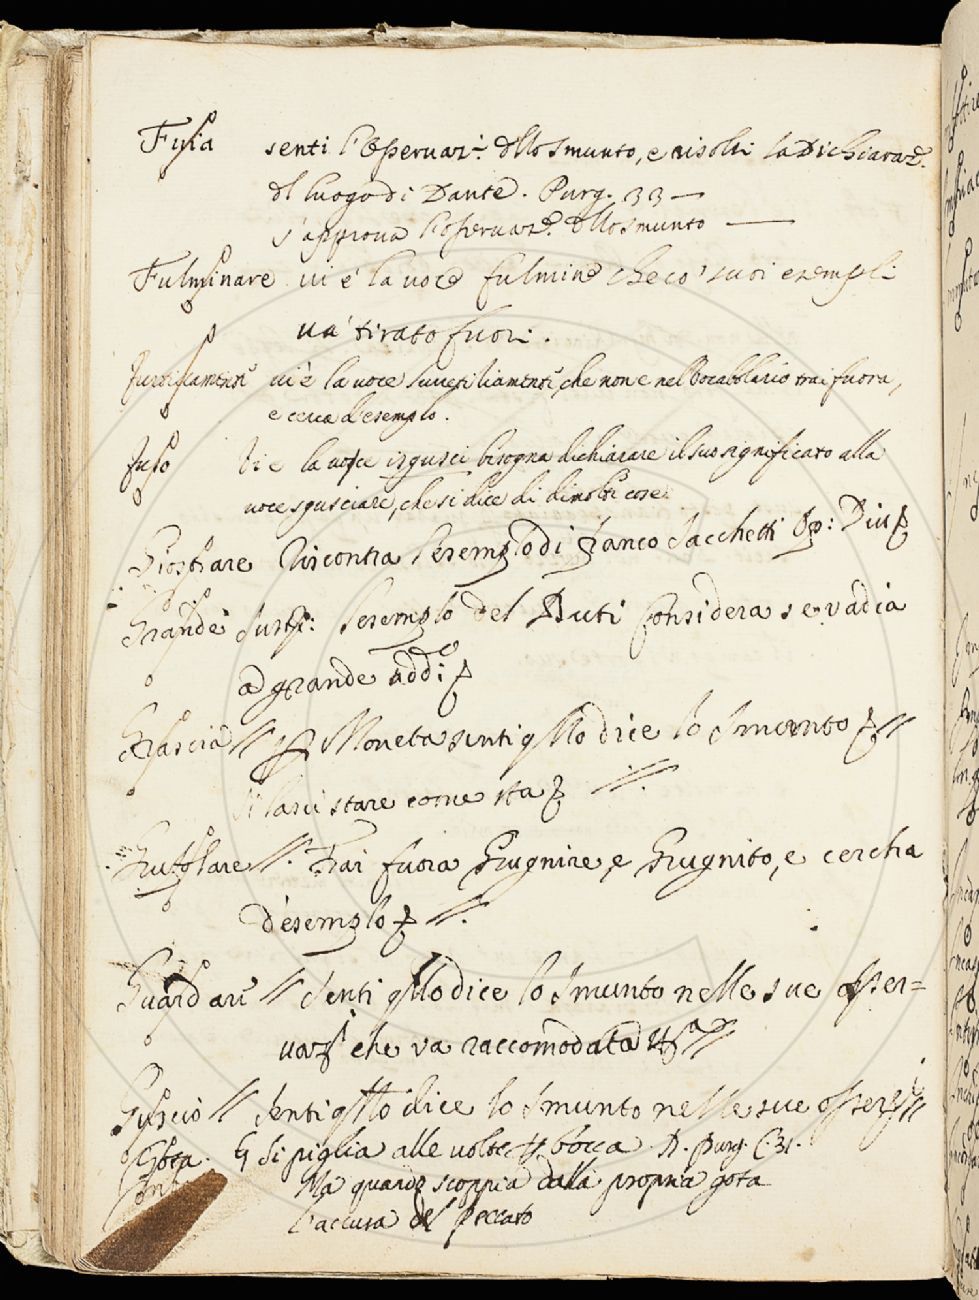 Fuia senti l'Osservaz.e dello Smunto, e risolvi la Dichiaraz.e
del luogo di Dante. Purg. 33 —
s'approva l'osservaz.e dello Smunto —
Fulminare vi è la voce fulmine che co' suoi esempli
va tirato fuori.
vi è la voce che non è nel Vocabolario trai fuora,
e cerca d'esemplo.
Fuso Vi e la voce bisogna dichiarare il suo significato alla
voce sgusciare, che si dice di di molte cose.
Giostrare Riscontra l'esemplo di Franco Sacchetti Op: Div
Grande sust: l'esemplo del Buti considera se vadia
a grande add.o
Grascia // Moneta senti q.llo dice lo Smunto //
si lasci stare come sta //.
Grufolare //. Trai fuora Grugnire, e Grugnito, e cercha
d'esemplo //.
Guardare // Senti q.llo dice lo Smunto nelle sue osser=
vaz.i che va raccomodata //
Guscio // Senti q.llo dice lo Smunto nelle sue osserz.i //
Gota. Si piglia alle volte p bocca D. Purg. C. 31.
Ma quando scoppia dalla propria gota
L'accusa del peccato